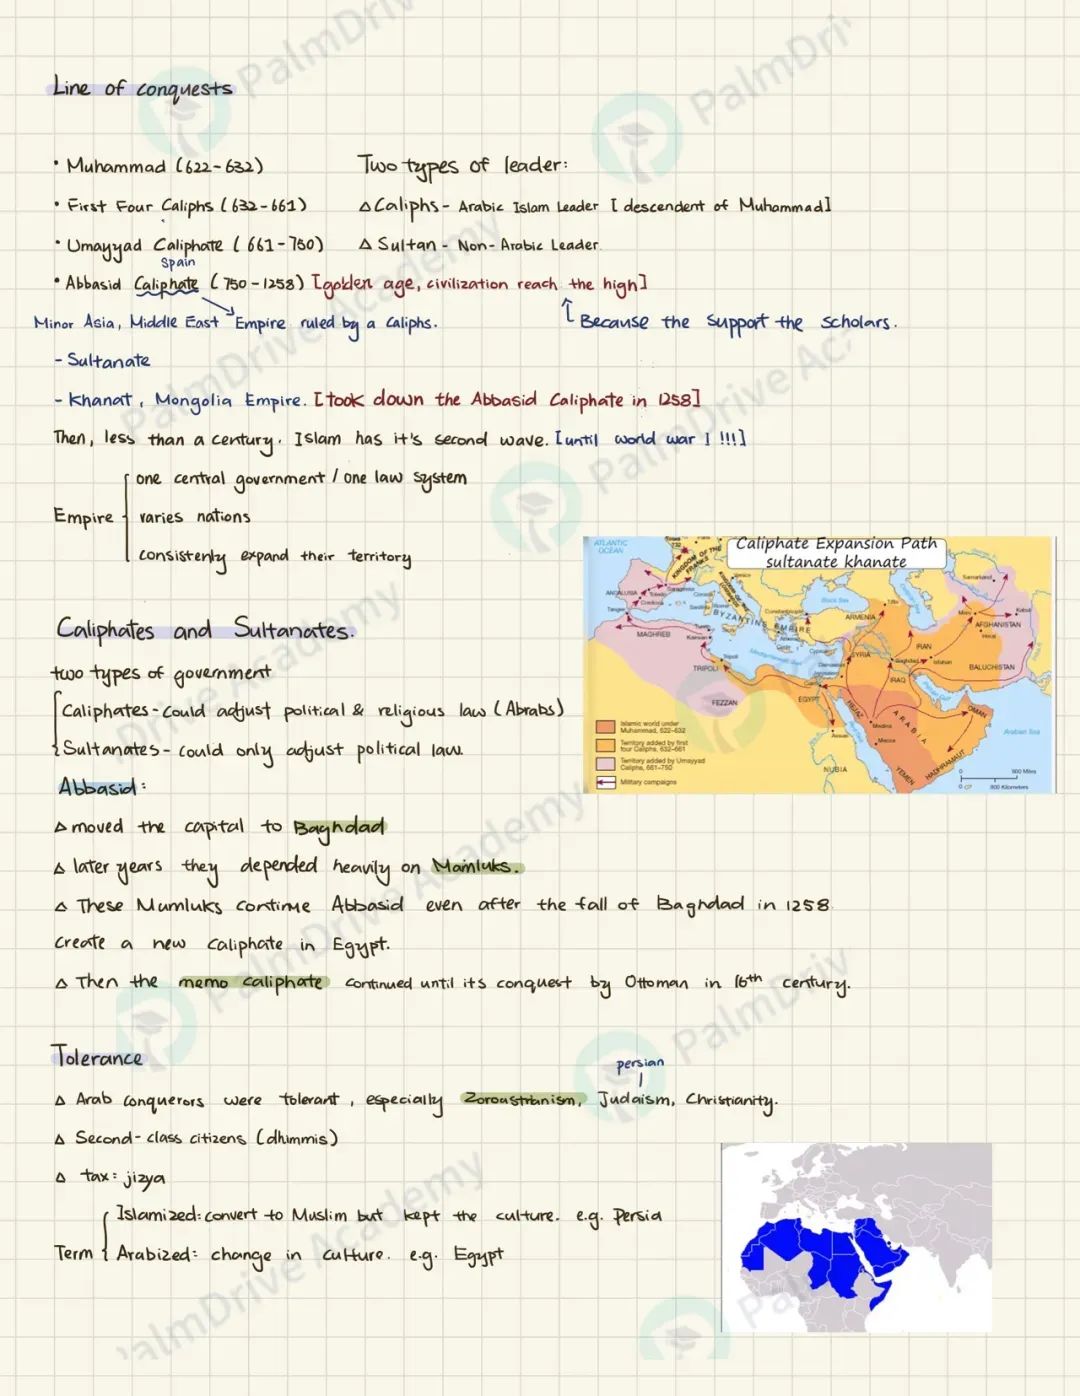 Line of conquests
• Muhammad (622-632)
Two types of leader:
• First Four Caliphs (632-661)
△ Caliphs - Arabic Islam Leader [descendent of Muhammad]
• Umayyad Caliphate (661-750)
△ Sultan - Non-Arabic Leader.
Spain
• Abbasid Caliphate (750-1258) [golden age, civilization reach the high]
Minor Asia, Middle East
Empire ruled by a Caliphs.
Because the support the scholars.
- Sultanate
- Khanat, Mongolia Empire. [took down the Abbasid Caliphate in 1258]
Then, less than a century. Islam has it's second wave. [until world war I !!!]
one central government / one law system
Empire
varies nations
consistenly expand their territory
Caliphate Expansion Path
sultanate khanate
ATLANTIC
OCEAN
732
KINGDOM OF THE
FRANKS
Venice
ANDALUSIA
Toledo
Saragossa
Cordoba
Tangier
Corsica
Sardinia
Rome
BYZANTINE EMPIRE
Constantinople
Black Sea
Tiflis
ARMENIA
Samarkand
Merv
Kabul
AFGHANISTAN
Herat
MAGHREB
Tunis
Kairwan
Sicily
Athens
Crete
Cyprus
Mediterranean Sea
SYRIA
Damascus
Jerusalem
Baghdad
Isfahan
IRAN
IRAQ
BALUCHISTAN
Tripoli
TRIPOLI
FEZZAN
Cairo
EGYPT
HEJAZ
Medina
Mecca
ARABIA
Persian Gulf
OMAN
Aswan
Red Sea
NUBIA
YEMEN
HADHRAMAUT
Arabian Sea
Islamic world under
Muhammad, 622–632
Territory added by first
four Caliphs, 632–661
Territory added by Umayyad
Caliphs, 661–750
Military campaigns
0 500 Miles
0 800 Kilometers
Caliphates and Sultanates.
two types of government
Caliphates - Could adjust political & religious law (Abrabs)
Sultanates - could only adjust political law.
Abbasid:
△ moved the capital to Baghdad
△ later years they depended heavily on Mamluks.
△ These Mumluks continue Abbasid even after the fall of Baghdad in 1258.
Create a new caliphate in Egypt.
△ Then the memo caliphate continued until its conquest by Ottoman in 16th century.
Tolerance
persian
△ Arab conquerors were tolerant, especially Zoroastrianism, Judaism, Christianity.
△ Second-class citizens (dhimmis)
△ tax: jizya
Islamized: convert to Muslim but kept the culture. e.g. Persia
Term
Arabized: change in culture. e.g. Egypt
PalmDrive Academy